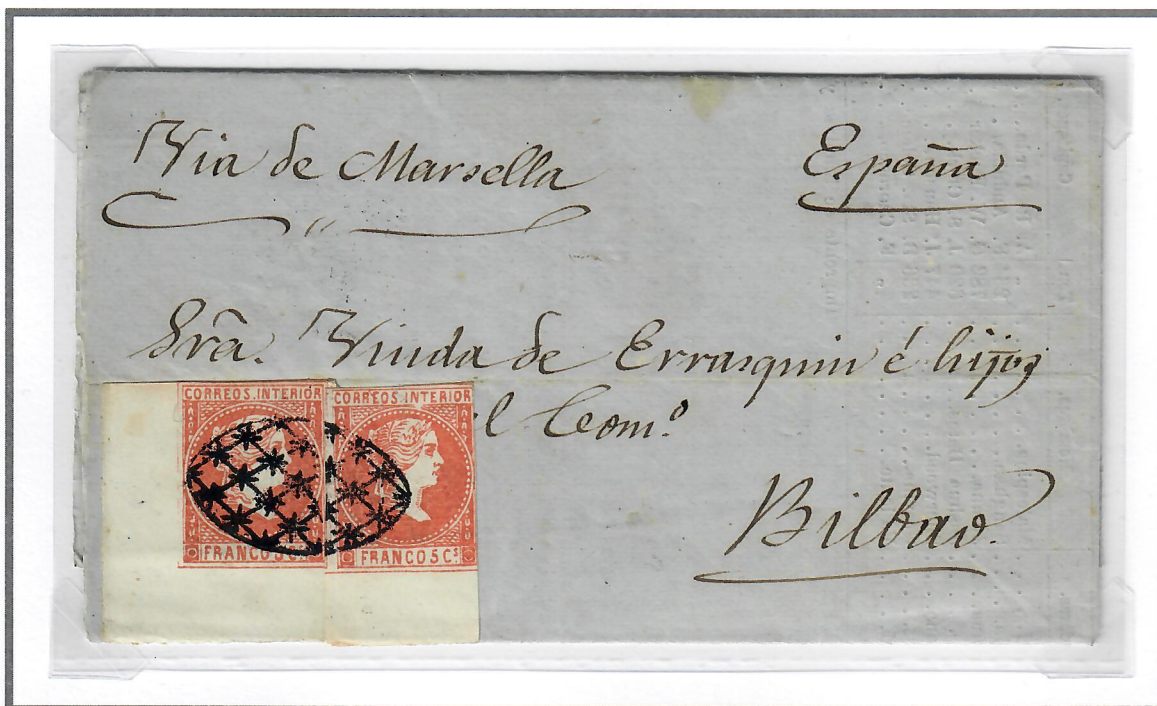 Via de Marsella España
Sra. Viuda de Errasquin é hijos
del Com.º
Bilbao.
CORREOS.INTERIOR CORREOS.INTERIOR
FRANCO 5 C.s FRANCO 5 C.s